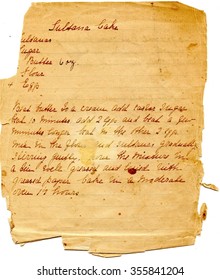 Sultana Cake
Sultanas
Sugar
Butter 6 oz
Flour
Eggs
butter to a cream add castor sugar
beat 10 minutes add 2 Eggs beat a few
minutes longer beat in the other 2 Eggs
in the flour and sultanas gradually
stirring gently. Pour the mixture in
a tin well greased and lined with
greased paper bake in a moderate
oven 1½ hours
shutterstock
355841204